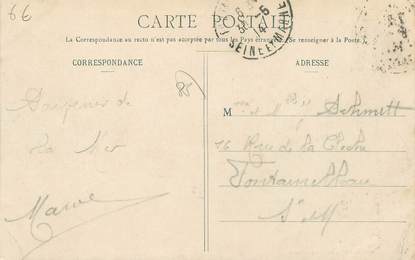 66
CARTE POSTALE
La Correspondance au recto n'est pas acceptée par tous les Pays étrangers. (Se renseigner à la Poste.)
SEINE-ET-MARNE
CORRESPONDANCE
ADRESSE
85
M Schmitt
16 Rue de la Cloche
Fontainebleau
S. et M.
de
La Mer
Marie